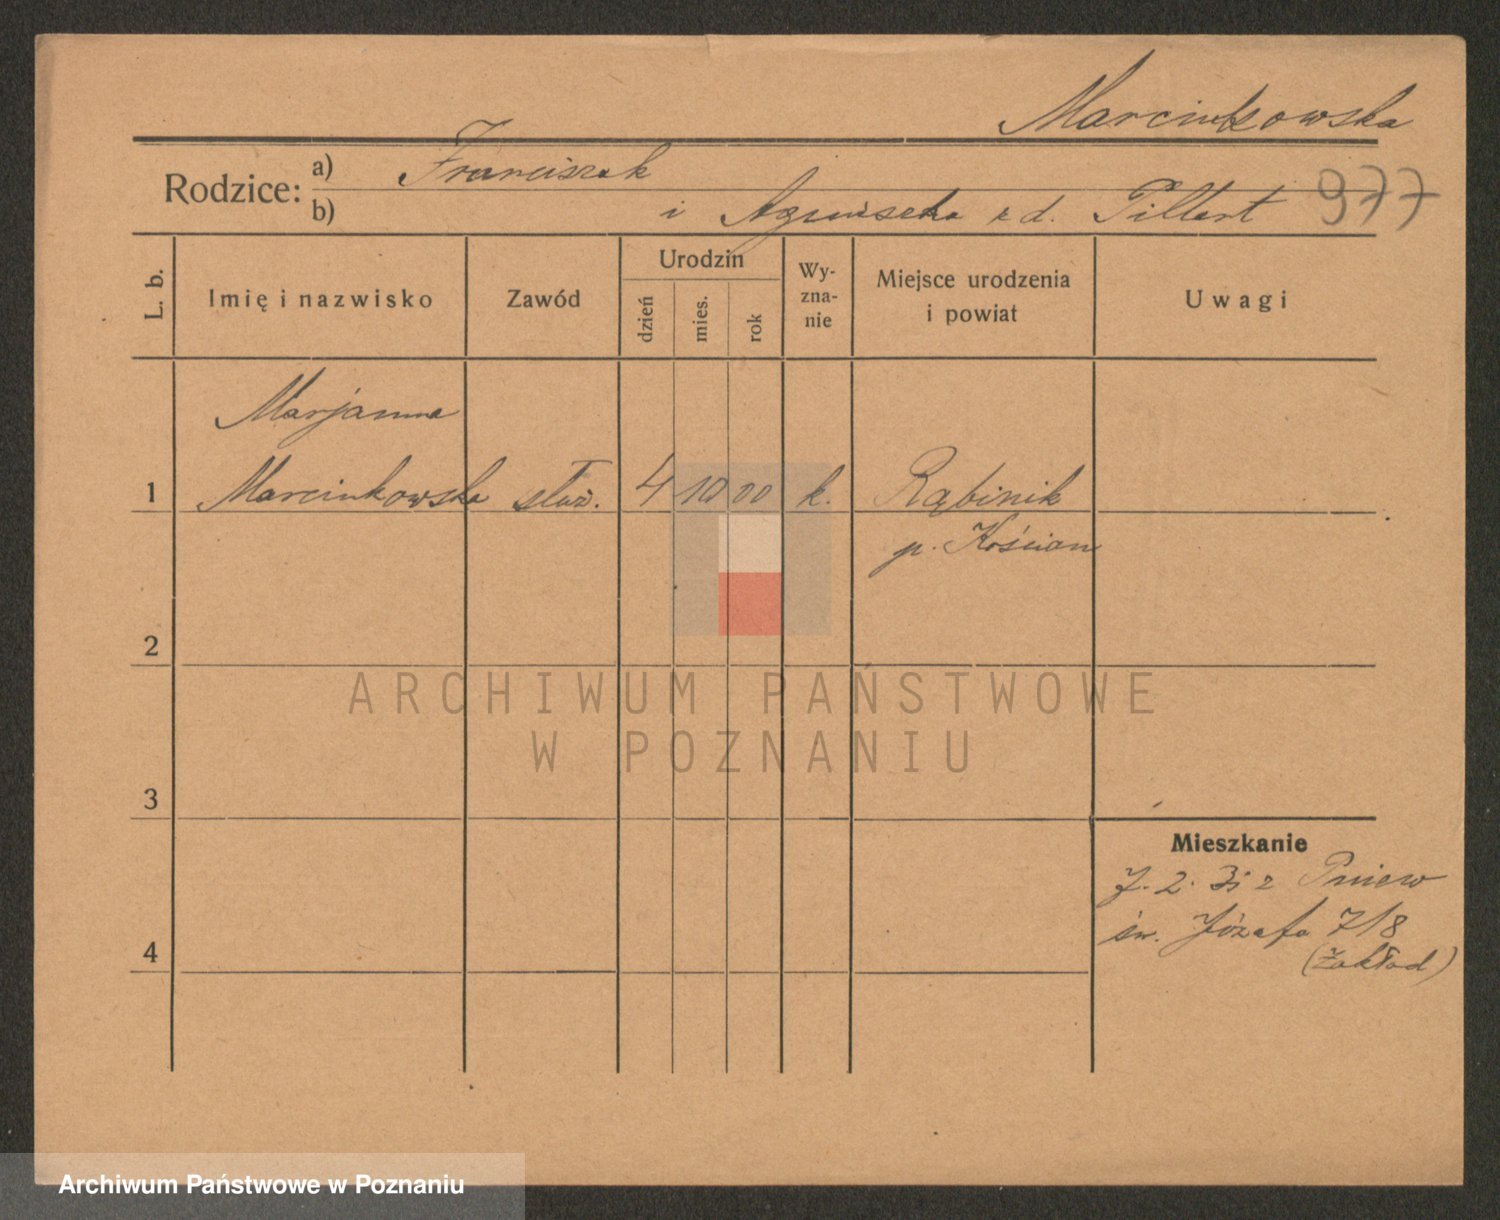 Marcinkowska
Rodzice: a) Franciszek
b) i Agnieszka z d. Piltert 977
L. b. Imię i nazwisko Zawód Urodzin dzień mies. rok Wy-zna-nie Miejsce urodzenia i powiat Uwagi
Marjanna
1 Marcinkowska służ. 4 10 00 k. Rąbinik
p. Kościan
2
ARCHIWUM PAŃSTWOWE
W POZNANIU
3
Mieszkanie
7. 2. 31 z Pniew
św. Józefa 7/8
4 (Zakład)
Archiwum Państwowe w Poznaniu